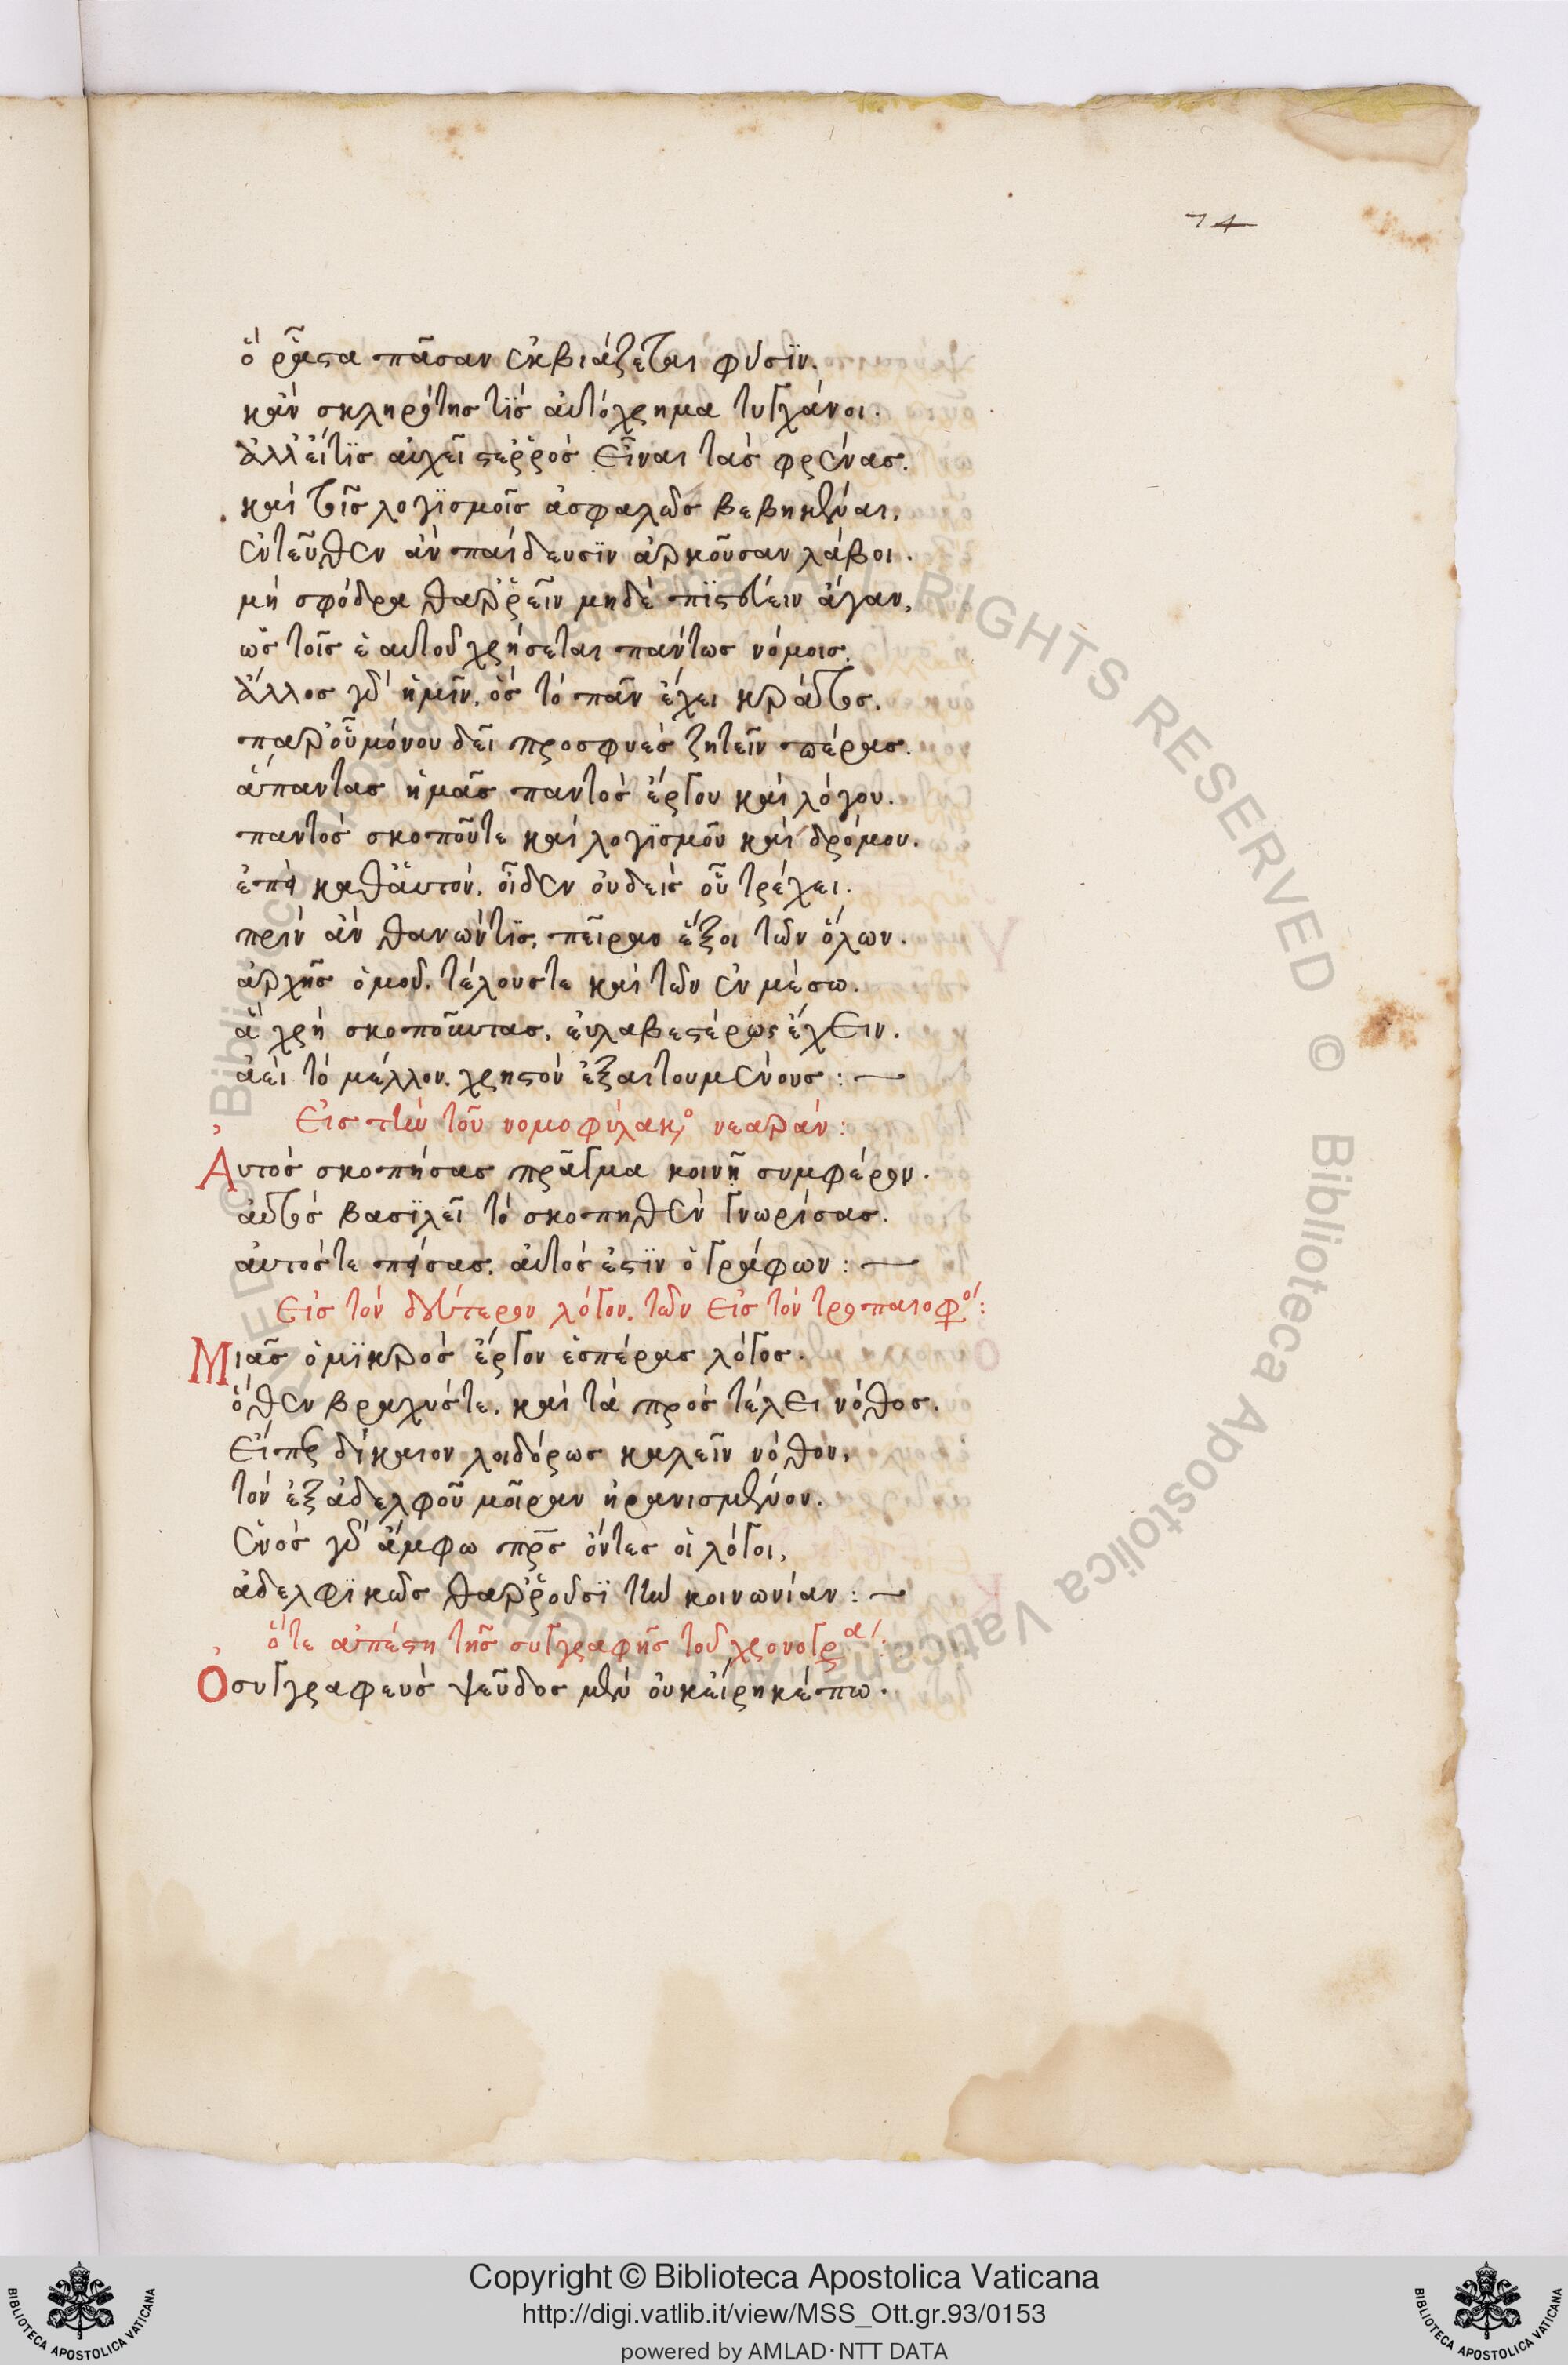 74
ὃ ῥᾷστα πᾶσαν ἐκβιάζεται φύσϊν.
κἂν σκληρότης τϊς αὐτόχρημα τυγχάνοι.
ἀλλ' εἴ τϊς αὐχεῖ στερρὸς εἶναι τὰς φρένας.
καὶ τοῖς λογϊσμοῖς ἀσφαλῶς βεβηκέναι,
ἐντεῦθεν ἂν παίδευσϊν ἀρκοῦσαν λάβοι.
μὴ σφόδρα θαρρεῖν μηδὲ πϊστεύειν ἄγαν,
ὡς τοῖς ἑαυτοῦ χρήσεται πάντως νόμοις.
ἄλλος γὰρ ἡμῖν, ὃς τὸ πᾶν ἔχει κράτος.
παρ' οὗ μόνου δεῖ προσφυὲς ζητεῖν πέρας.
ἅπαντας ἡμᾶς παντὸς ἔργου καὶ λόγου.
παντὸς σκοποῦ τε καὶ λογϊσμοῦ καὶ δρόμου.
ἐπεὶ καθ' αὑτὸν, οἶδεν οὐδεὶς οὗ τρέχει.
πρὶν ἂν θανών τϊς, πεῖραν ἕξοι τῶν ὅλων.
ἀρχῆς ὁμοῦ. τέλους τε καὶ τῶν ἐν μέσω.
ἃ χρὴ σκοποῦντας, εὐλαβεστέρως ἔχειν.
ἀεὶ τὸ μέλλον. χρηστὸν ἐξαιτουμένους :
Εἰς τὴν τοῦ νομοφύλακο νεαράν :
Αὐτὸς σκοπήσας πρᾶγμα κοινῇ συμφέρον.
αὐτὸς βασϊλεῖ τὸ σκοπηθὲν γνωρίσας.
αὐτός τε πείσας. αὐτός ἐστϊν ὁ γράφων :
Εἰς τὸν δεύτερον λόγον. τῶν εἰς τὸν τροπαιοφό :
Μιᾶς ὁ μϊκρὸς ἔργον ἑσπέρας λόγος.
ὅθεν βραχύς τε. καὶ τὰ πρὸς τέλει νόθος.
Εἴπερ δίκαιον λοιδόρως καλεῖν νόθον,
τὸν ἐξ ἀδελφοῦ μοῖραν ἠρανισμένον.
ἑνὸς γὰρ ἄμφω πρς ὄντες οἱ λόγοι,
ἀδελφϊκῶς θαρροῦσϊ τὴν κοινωνίαν :
ὅτε ἀπέστη τῆς συγγραφῆς τοῦ χρονογρά :
Ὁ συγγραφεὺς ψεῦδος μὲν οὐκ εἴρηκέ πω.
Copyright © Biblioteca Apostolica Vaticana
http://digi.vatlib.it/view/MSS_Ott.gr.93/0153
powered by AMLAD·NTT DATA